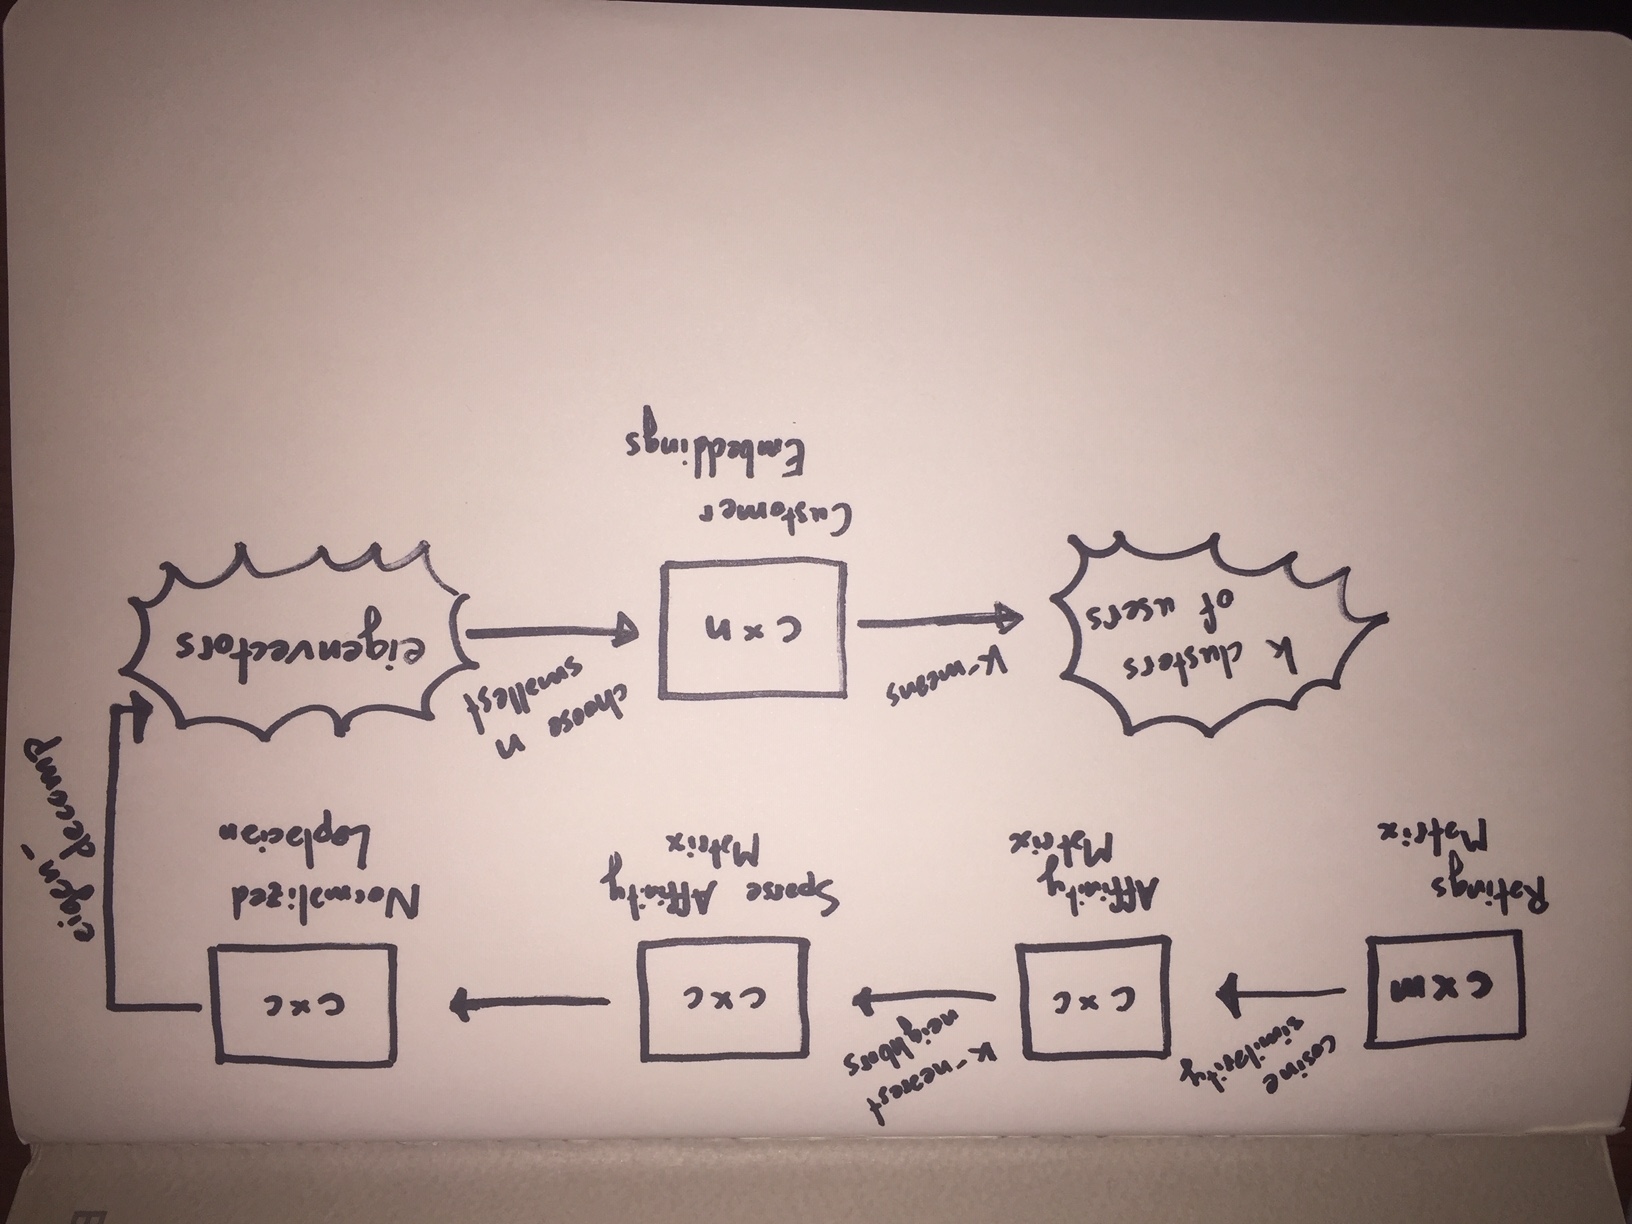 c x m
Ratings
Matrix
cosine
similarity
c x c
Affinity
Matrix
k-nearest
neighbors
c x c
Sparse Affinity
Matrix
c x c
Normalized
Laplacian
eigen-
decomp
eigenvectors
choose n
smallest
c x n
Customer
Embeddings
k-means
k clusters
of users